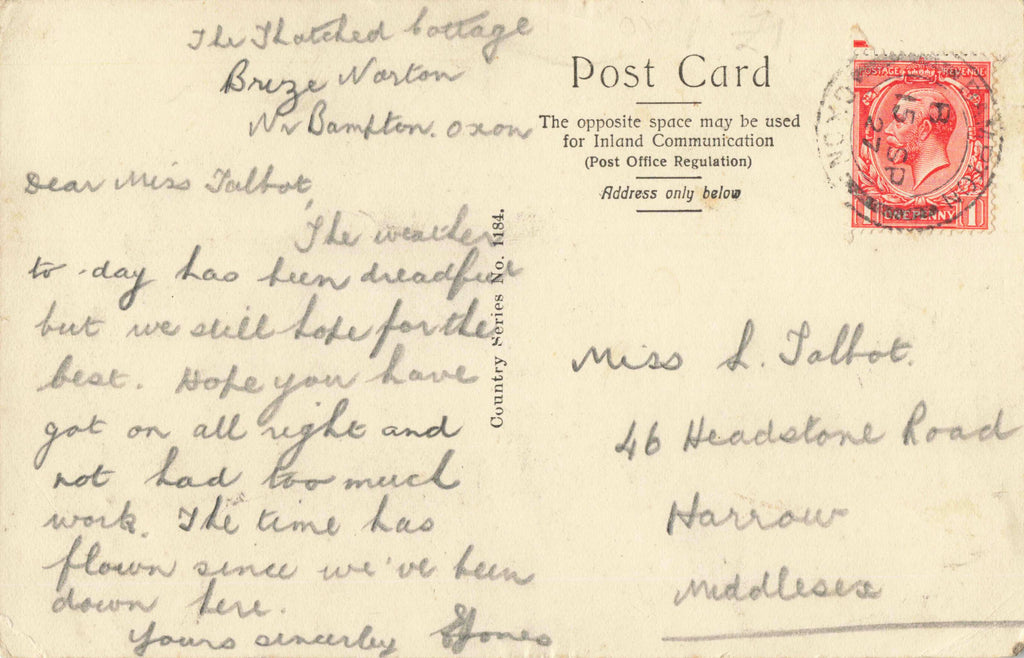 The Thatched Cottage
Brize Norton
Nr Bampton. Oxon
Dear Miss Talbot,
The weather
to-day has been dreadful
but we still hope for the
best. Hope you have
got on all right and
not had too much
work. The time has
flown since we've been
down here.
Yours sincerley EJones
Country Series No. 1184.
Post Card
The opposite space may be used
for Inland Communication
(Post Office Regulation)
Address only below
POSTAGE REVENUE
15 SP
27
1 ONE PENNY 1
Miss L. Talbot.
46 Headstone Road
Harrow
Middlesex